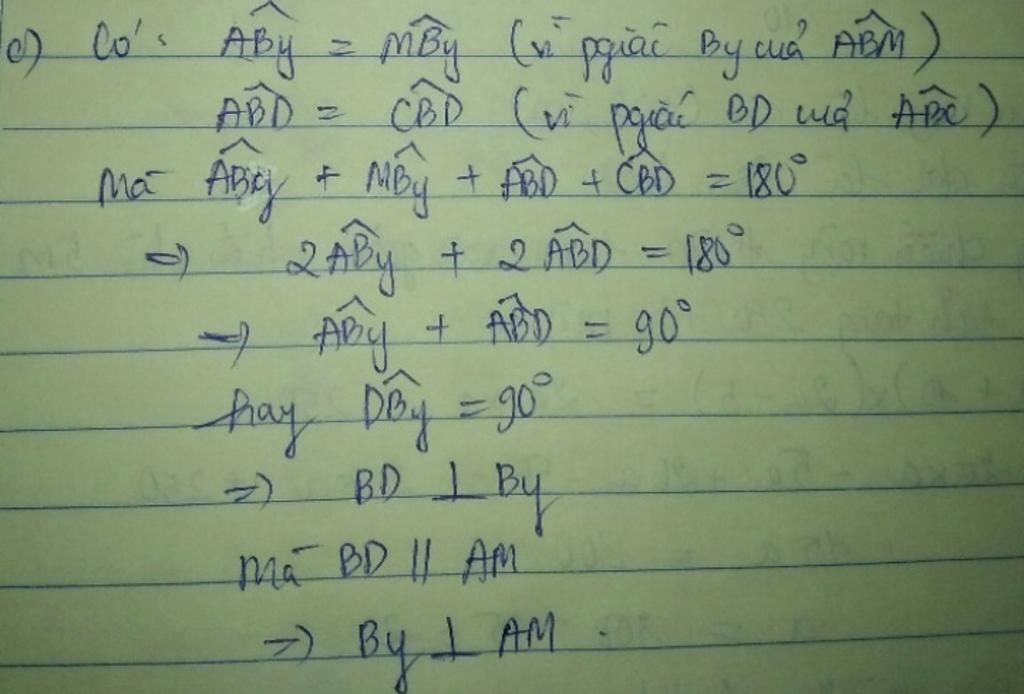 c) Có: $\widehat{ABy}$ = $\widehat{MBy}$ (vì pgiác By của $\widehat{ABM}$)
$\widehat{ABD}$ = $\widehat{CBD}$ (vì pgiác BD của $\widehat{ABC}$)
Mà $\widehat{ABy}$ + $\widehat{MBy}$ + $\widehat{ABD}$ + $\widehat{CBD}$ = 180°
⇒ 2$\widehat{ABy}$ + 2$\widehat{ABD}$ = 180°
⇒ $\widehat{ABy}$ + $\widehat{ABD}$ = 90°
hay $\widehat{DBy}$ = 90°
⇒ BD ⊥ By
mà BD // AM
⇒ By ⊥ AM.